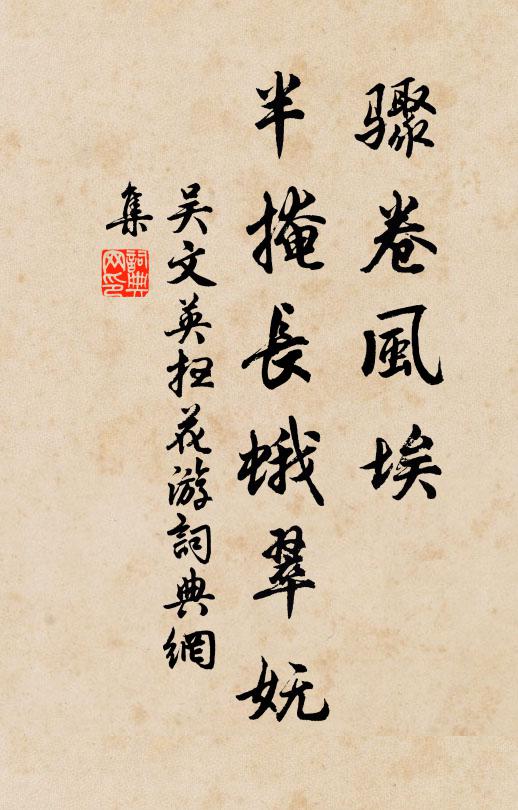 驟卷風埃
半掩長蛾翠妩
吳文英掃花游詞典網
集
詞典網印